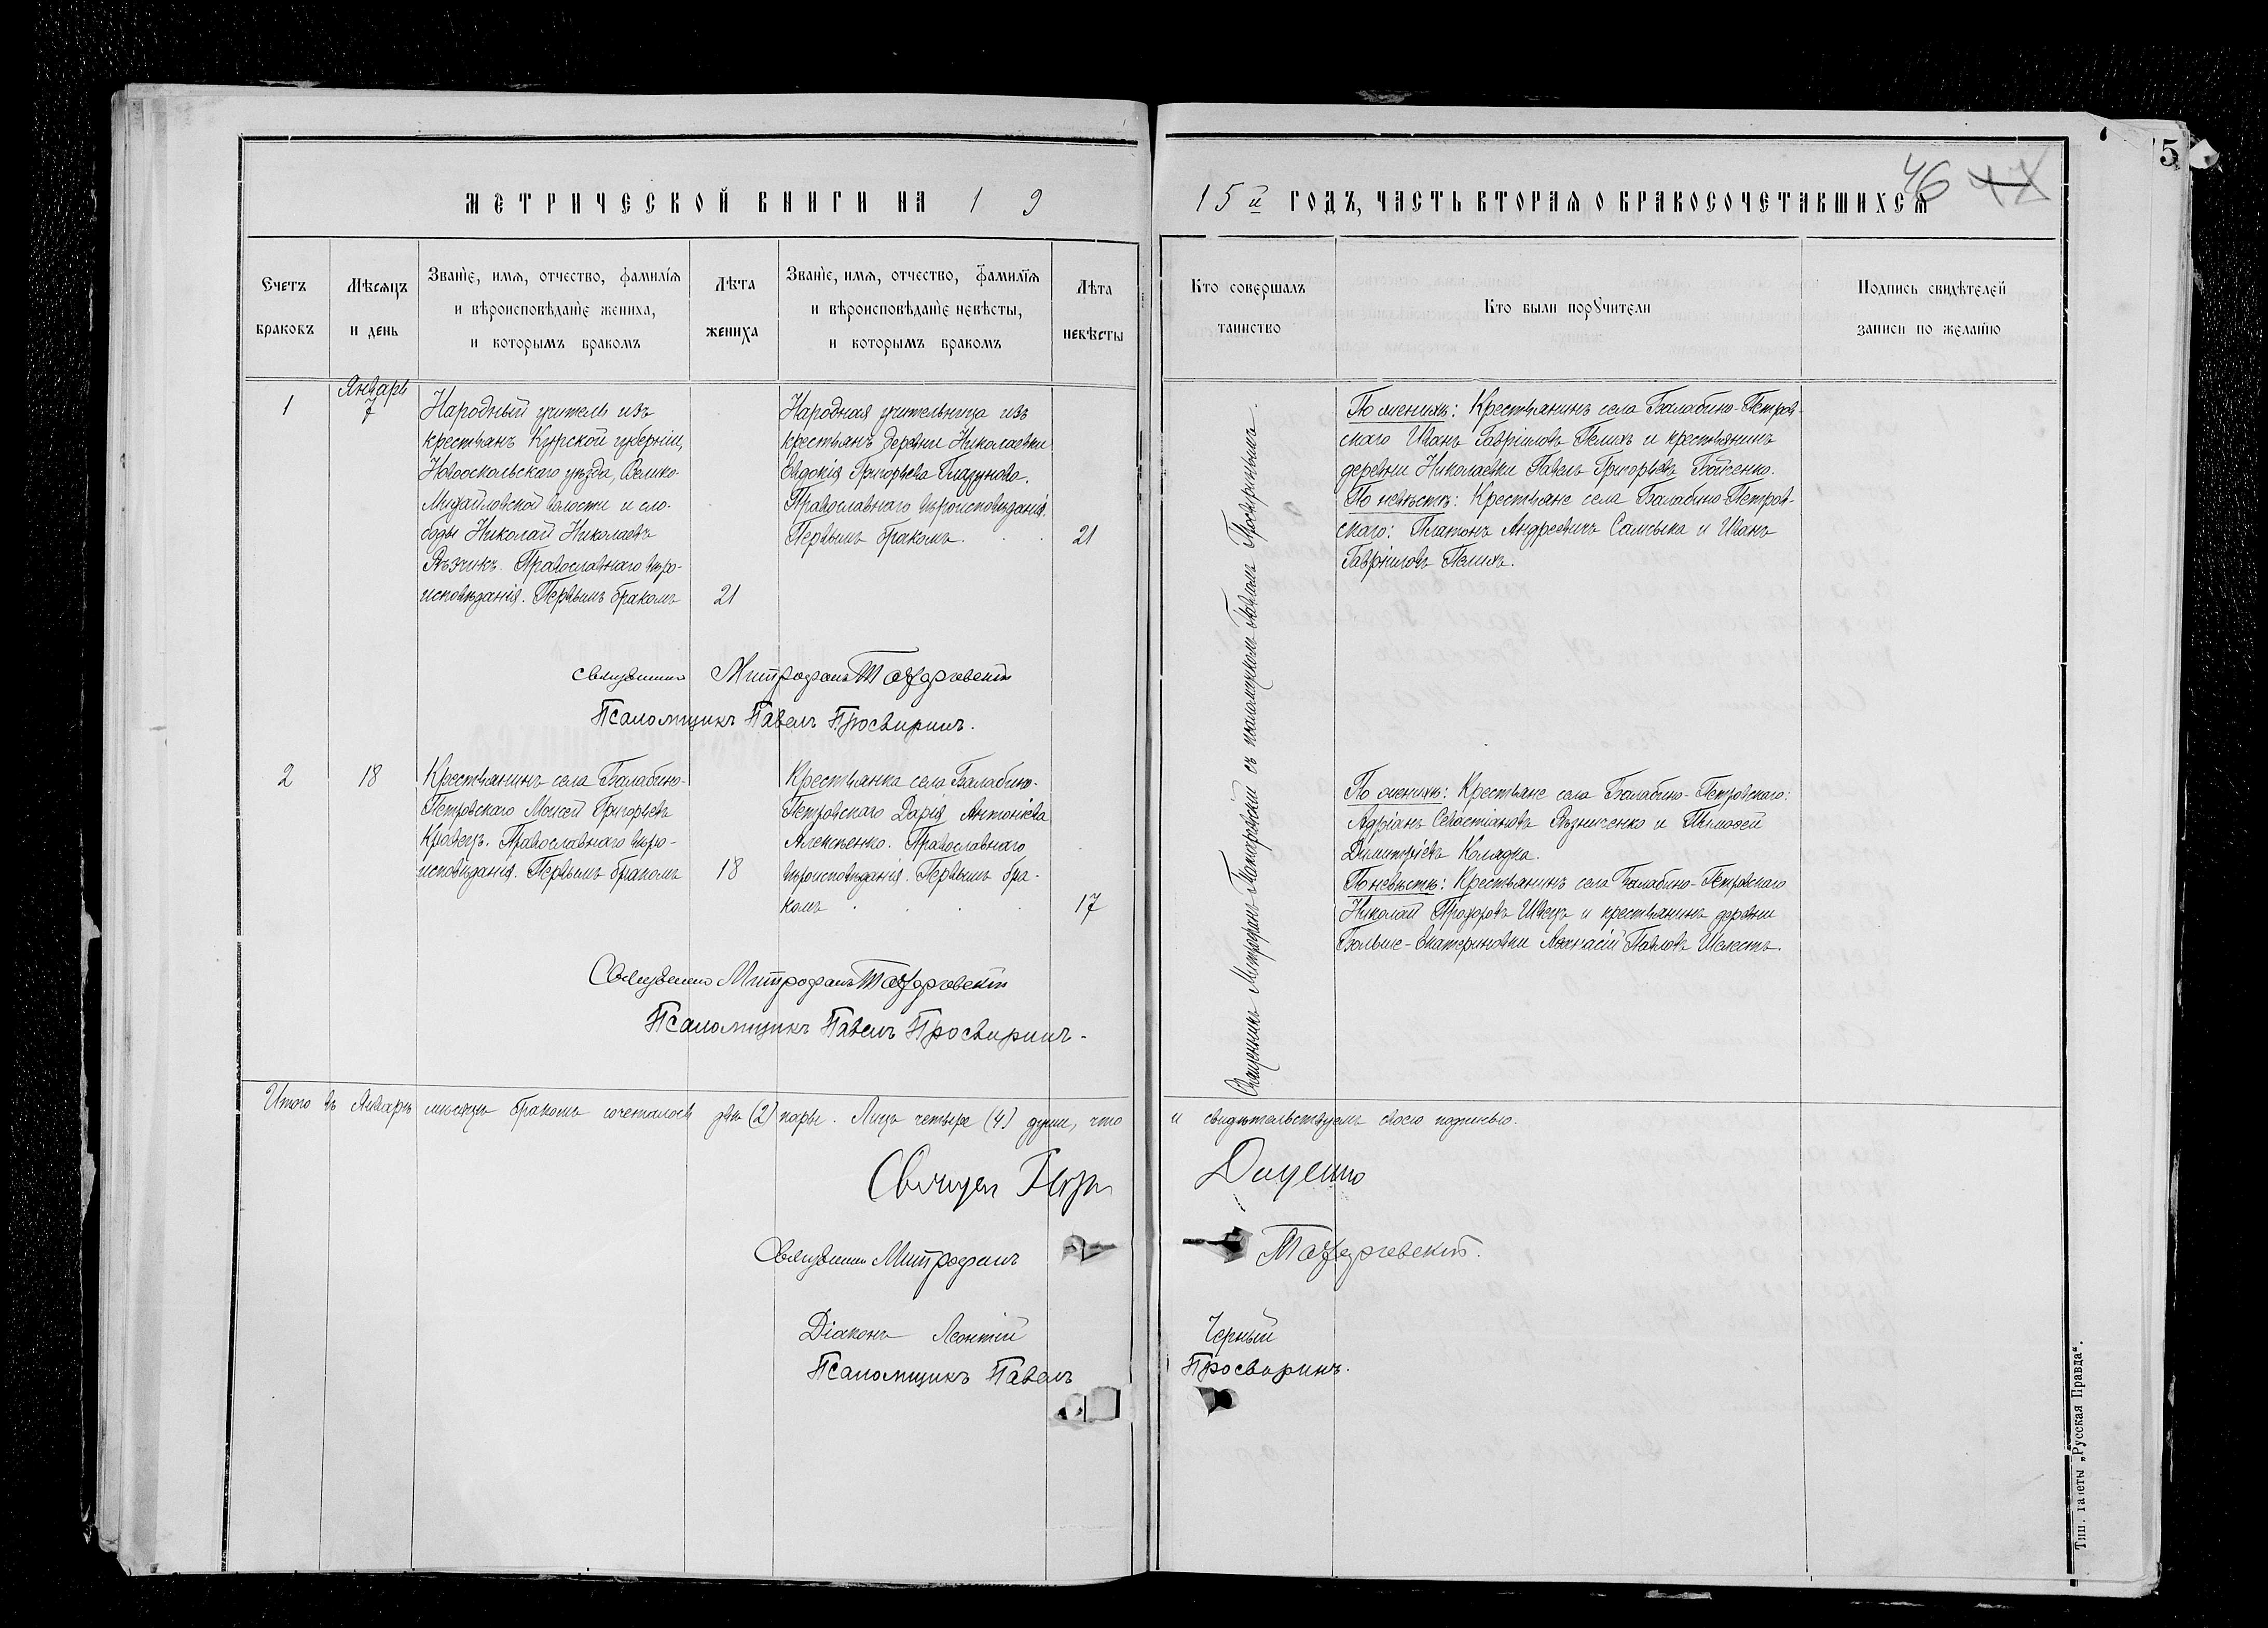 МЕТРИЧЕСКОЙ КНИГИ НА 1 9
15й ГОДЪ, ЧАСТЬ ВТОРАЯ О БРАКОСОЧЕТАВШИХСЯ
46
5
Счетъ браковъ
Мѣсяцъ и день
Званіе, имя, отчество, фамилія
и вѣроисповѣданіе жениха,
и которымъ бракомъ
Лѣта жениха
Званіе, имя, отчество, фамилія
и вѣроисповѣданіе невѣсты,
и которымъ бракомъ
Лѣта невѣсты
Кто совершалъ таинство
Кто были поручители
Подпись свидѣтелей
записи по желанію
1
Январь
7
Народный учитель изъ
крестьянъ Курской губерніи,
Новооскольскаго уѣзда, Велико-
Михайловской волости и сло-
боды Николай Николаевъ
Рѣзчикъ. Православнаго вѣро-
исповѣданія. Первымъ бракомъ
21
Народная учительница изъ
крестьянъ деревни Николаевки
Евдокія Григорьева Глазунова.
Православнаго вѣроисповѣданія.
Первымъ бракомъ.
21
Священникъ Митрофанъ Тахтаровскій съ псаломщикомъ Павломъ Просвиринымъ.
По женихѣ: Крестьянинъ села Балабино-Петров-
скаго Иванъ Гавріиловъ Пелихъ и крестьянинъ
деревни Николаевки Павелъ Григорьевъ Баженко.
По невѣстѣ: Крестьяне села Балабино-Петров-
скаго: Платонъ Андреевичъ Самсыка и Иванъ
Гавріиловъ Пелихъ.
Священникъ Митрофанъ
Псаломщикъ Павелъ Просвиринъ.
2
18
Крестьянинъ села Балабино-
Петровскаго Моисей Григорьевъ
Кравецъ. Православнаго вѣро-
исповѣданія. Первымъ бракомъ
18
Крестьянка села Балабино-
Петровскаго Дарія Антоніева
Алексѣенко. Православнаго
вѣроисповѣданія. Первымъ бра-
комъ
17
По женихѣ: Крестьяне села Балабино-Петровскаго:
Адріанъ Севастіановъ Рѣзниченко и Тимофей
Димитріевъ Колядка.
По невѣстѣ: Крестьянинъ села Балабино-Петровскаго
Николай Прохоровъ Швецъ и крестьянинъ деревни
Больше-Екатериновки Афанасій Павловъ Шелестъ.
Священникъ Митрофанъ
Псаломщикъ Павелъ Просвиринъ.
Итого въ Январѣ мѣсяцѣ бракомъ сочеталось двѣ (2) пары. Лицъ четыре (4) души, что и свидѣтельствуемъ своею подписью.
Священ Петръ Даценко
Священникъ Митрофанъ
Діаконъ Леонтій Черный
Псаломщикъ Павелъ Просвиринъ.
Тип. газеты „Русская Правда“.